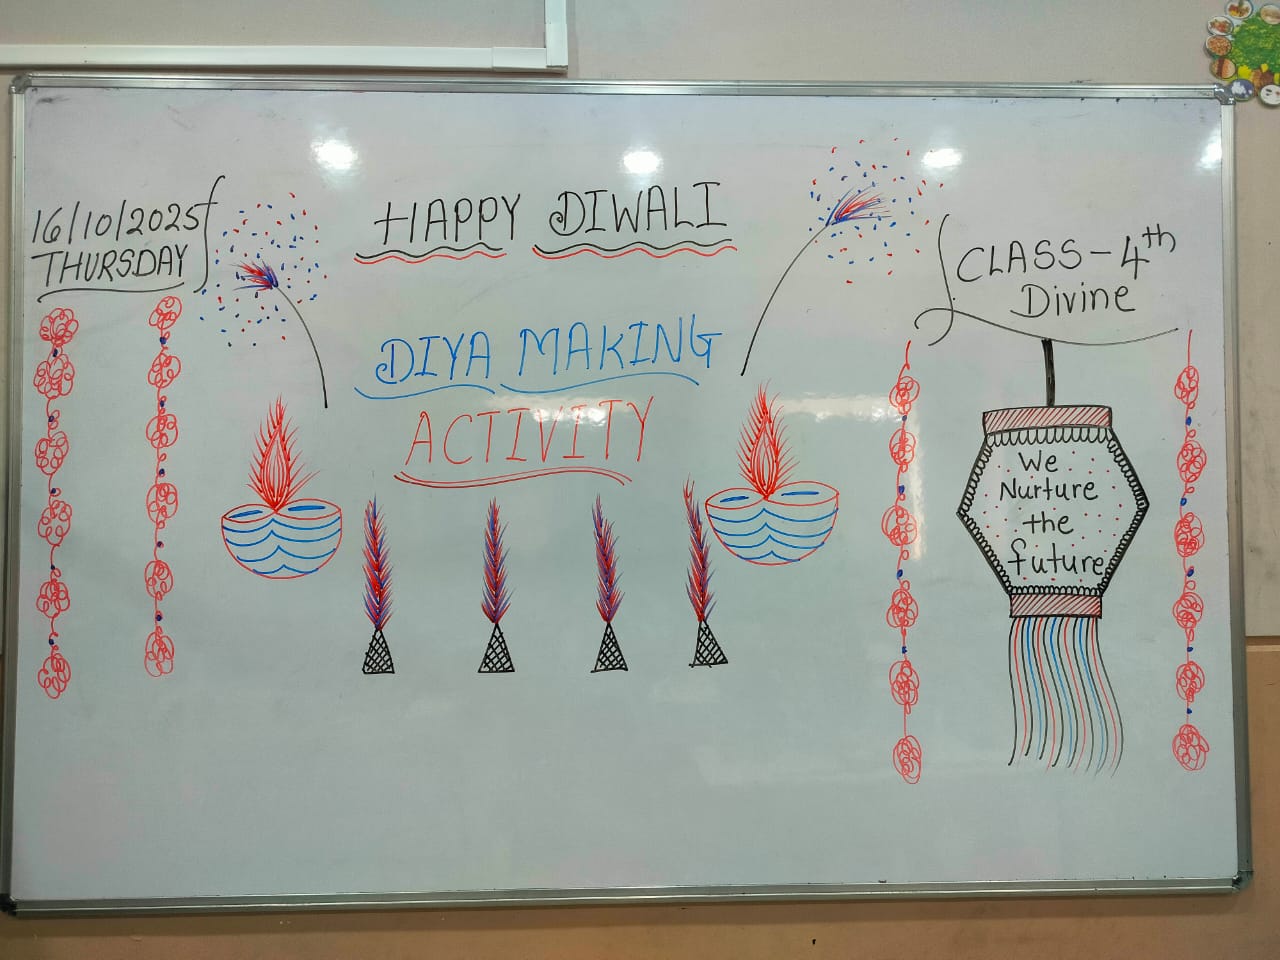 16/10/2025
THURSDAY
HAPPY DIWALI
DIYA MAKING
ACTIVITY
CLASS - 4th
Divine
We
Nurture
the
future